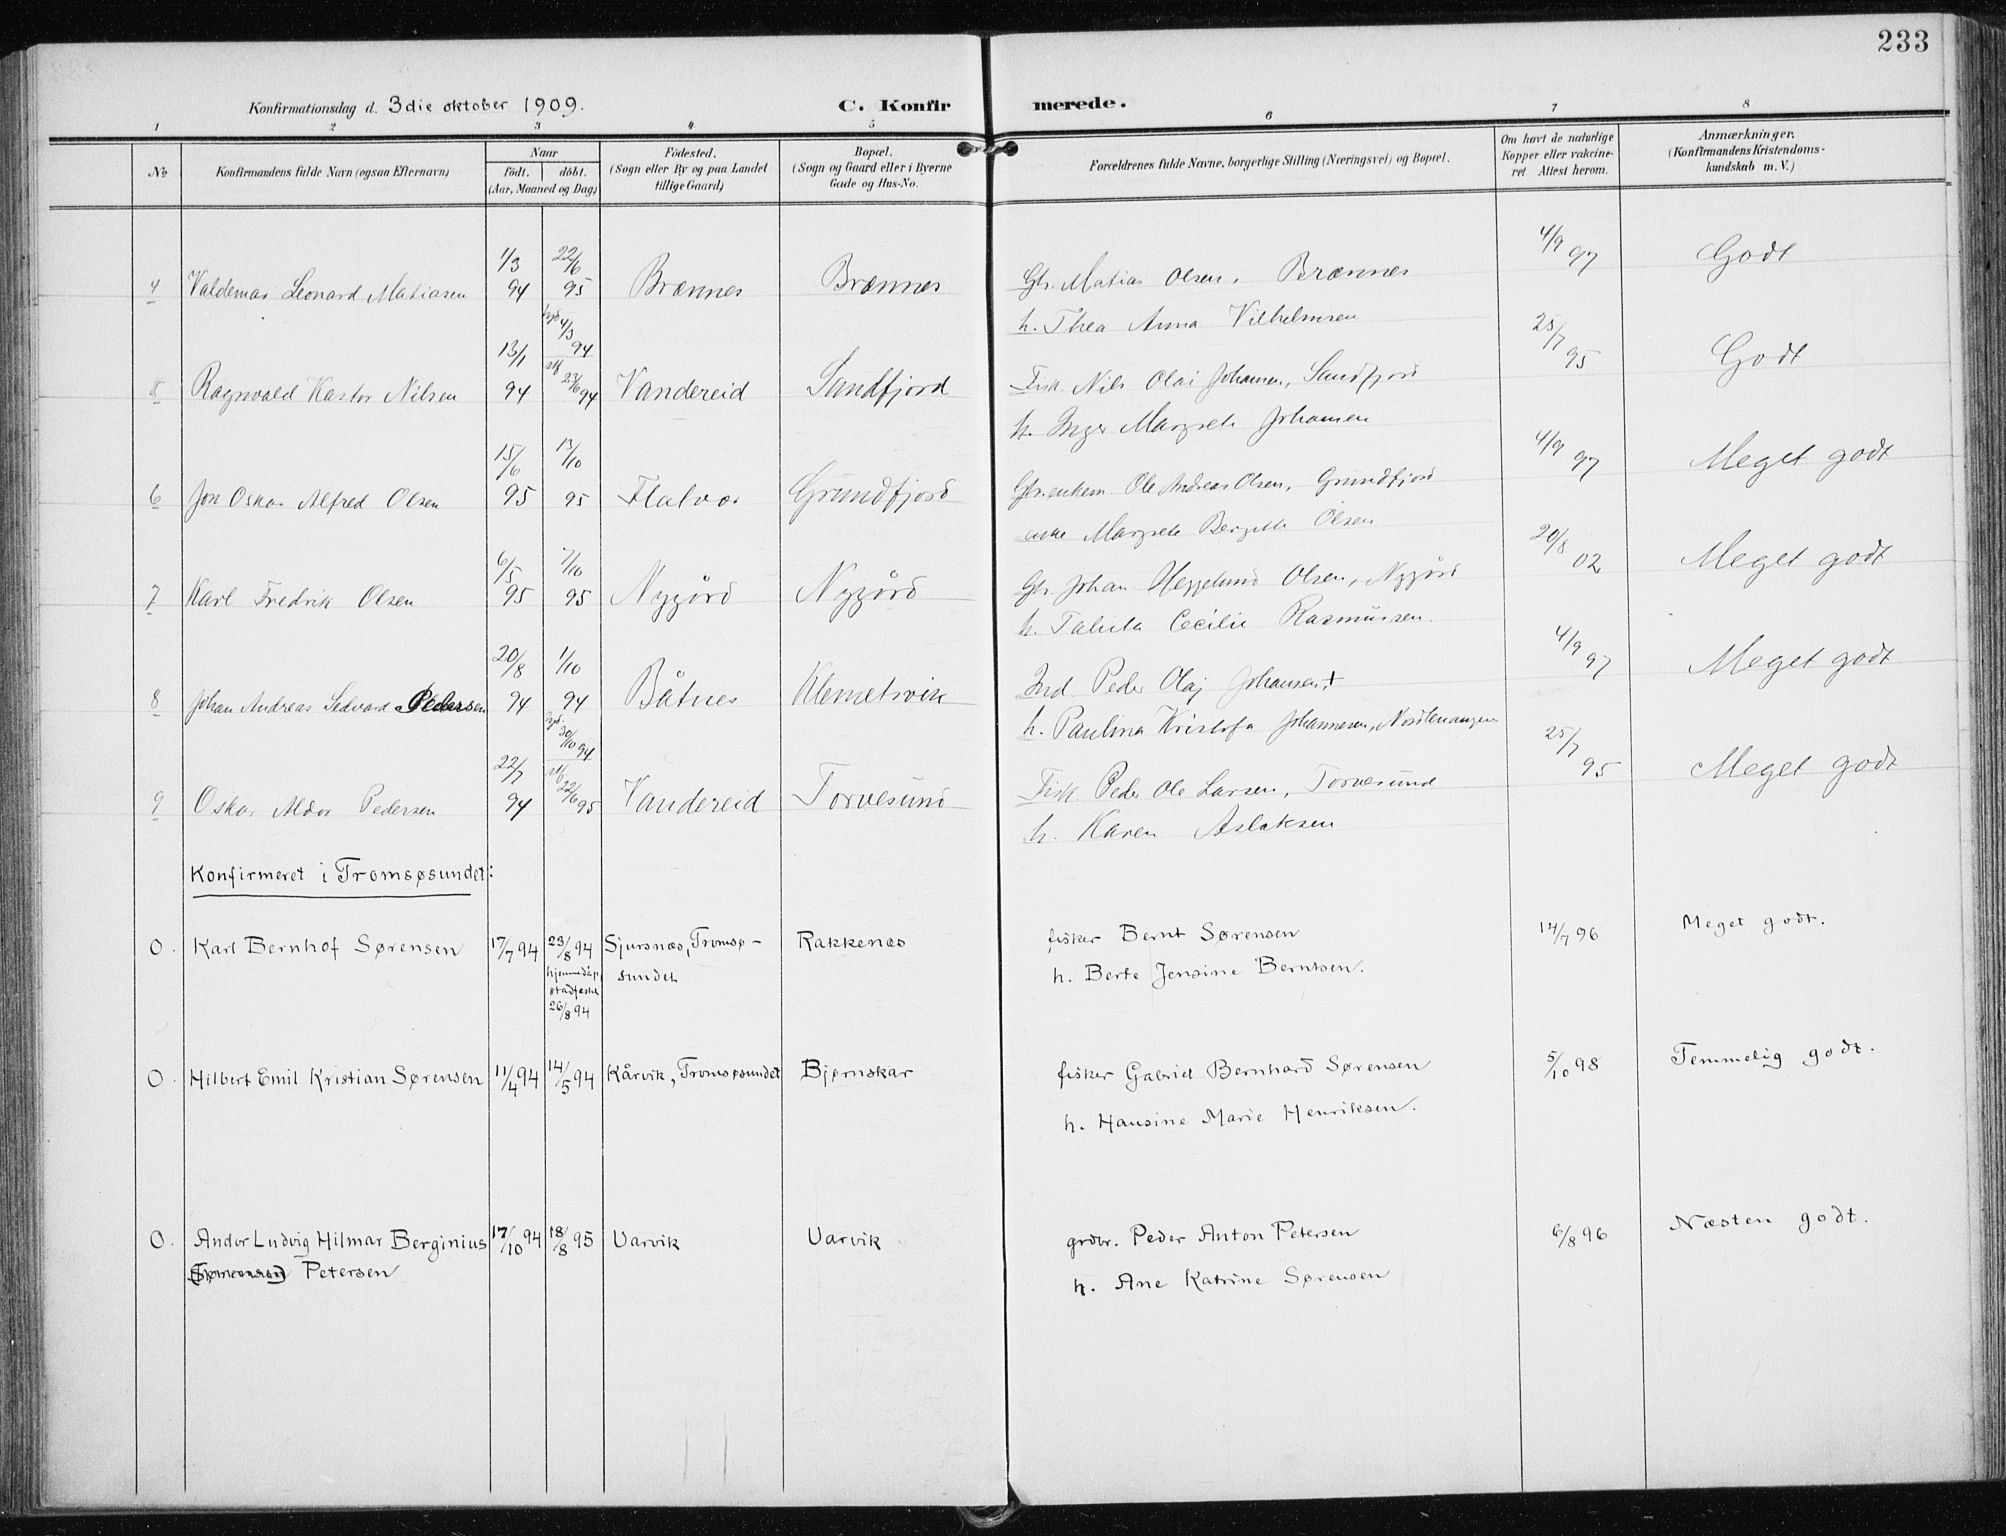 233
Konfirmationsdag d. 3die oktober 1909.
C. Konfir merede.
1 2 3 4 5 6 7 8
No
Konfirmandens fulde Navn (ogsaa Efternavn)
Naar
födt. döbt.
(Aar, Maaned og Dag)
Födested.
(Sogn eller By og paa Landet
tillige Gaard)
Bopæl.
(Sogn og Gaard eller i Byerne
Gade og Hus-No.
Forældrenes fulde Navne, borgerlige Stilling (Næringsvei) og Bopæl.
Om havt de naturlige
Kopper eller vakcine-
ret Attest herom.
Anmærkninger.
(Konfirmandens Kristendoms-
kundskab m. V.)
4 Valdemar Leonard Matiasen 1/3 94 22/6 95 Brænnes Brænnes Gbr. Matias Olsen, Brænnes 4/9 97 Godt
h. Thea Anna Vilhelmsen
5 Ragnvald Kastor Nilsen 13/1 94 4/3 94 23/6 94 Vandereid Sandfjord Fisk. Nils Olai Johansen, Sandfjord 25/7 95 Godt
h. Inger Margrete Johansen
6 Jon Oskar Alfred Olsen 15/6 95 13/10 95 Flatvær Grundfjord Gbr. enkem. Ole Andreas Olsen, Grundfjord 4/9 97 Meget godt
Margrete Bergitte Olsen
7 Karl Fredrik Olsen 6/5 95 7/10 95 Nygård Nygård Gbr. Johan Heggelund Olsen, Nygård 20/8 02 Meget godt
h. Tabita Cecilie Rasmussen.
8 Johan Andreas Sedvard Pedersen 20/8 94 1/10 94 Båtnes Klemetsvik Ind. Peder Olaj Johansen + 4/9 97 Meget godt
h. Paulina Kristofa Johannesen, Nordlenangen
9 Oskar Aldor Pedersen 22/7 94 30/10 94 22/6 95 Vandereid Torvesund Fisk. Peder Ole Larsen, Torvesund 25/7 95 Meget godt
h. Karen Aslaksen
Konfirmeret i Tromsøsundet:
0. Karl Bernhof Sørensen 17/7 94 23/8 94 Sjursnæs, Tromsø- Rakkenæs fisker Bernt Sørensen 14/7 96 Meget godt.
hjemmedåp sundet h. Berte Jensine Berntsen.
stadfæstet
26/8 94
0. Hilbert Emil Kristian Sørensen 11/4 94 14/5 94 Kårvik, Tromsøsundet Bjørnskar fisker Gabriel Bernhard Sørensen 5/10 98 Temmelig godt.
h. Hansine Marie Henriksen.
0. Andor Ludvig Hilmar Berginius 17/10 94 18/8 95 Varvik Varvik grdbr. Peder Anton Petersen 6/8 96 Næsten godt.
Petersen h. Ane Katrine Sørensen